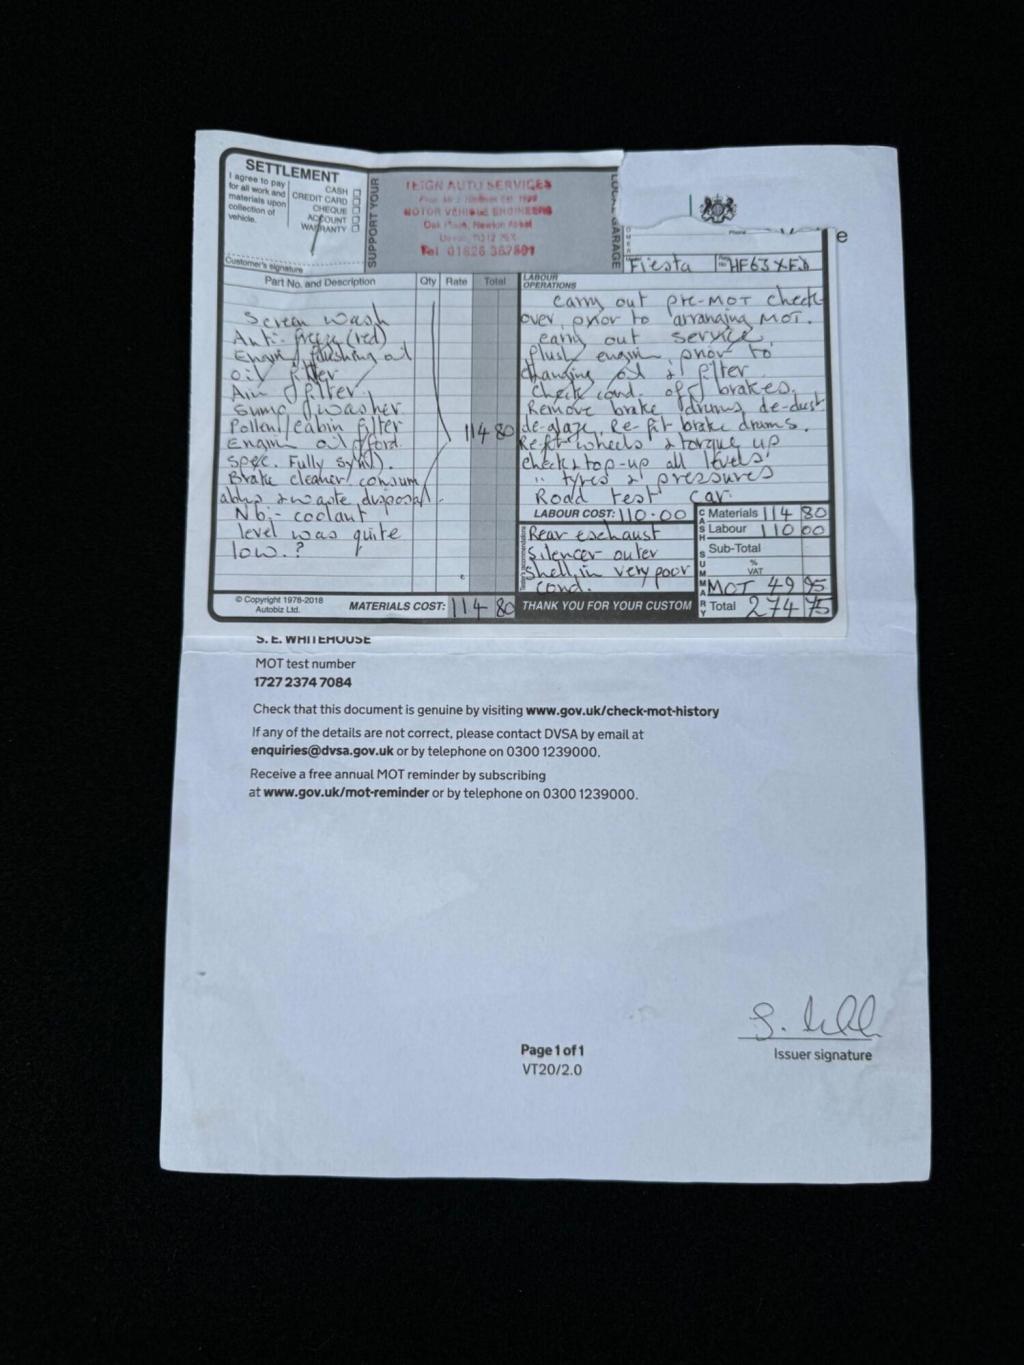 SETTLEMENT
I agree to pay
for all work and
materials upon
collection of
vehicle.
CASH
CREDIT CARD
CHEQUE
ACCOUNT
WARRANTY
Customer's signature
SUPPORT YOUR
TEIGN AUTO SERVICES
MOTOR VEHICLE ENGINEERS
Newton Abbot
Tel 01626 367891
LOCAL GARAGE
Phone
e
Fiesta
HF63 XFD
Part No. and Description Qty Rate Total
Screen wash
Anti-freeze (red)
Engine flushing oil
oil filter
Air filter
Sump washer
Pollen/cabin filter
Engine oil (ford. 114 80
spec. Fully synth).
Brake cleaner consum
ables & waste disposal
Nb:- coolant
level was quite
low.?
© Copyright 1978-2018
Autobiz Ltd.
MATERIALS COST: 114 80
LABOUR
OPERATIONS
carry out pre-MOT check
over, prior to arranging MOT.
carry out service,
flush engine, prior to
changing oil & filter
Check cond. of brakes.
Remove brake drums de-dust
de-glaze, Re-fit brake drums.
Re-fit wheels & torque up
check & top-up all levels
" tyres & pressures
Road test car.
LABOUR COST: 110.00
Rear exchaust
Silencer outer
Shell, in very poor
cond.
THANK YOU FOR YOUR CUSTOM
CASH SUMMARY
Materials 114 80
Labour 110 00
Sub-Total
%
VAT
MOT 49 95
Total 274 75
S. E. WHITEHOUSE
MOT test number
1727 2374 7084
Check that this document is genuine by visiting www.gov.uk/check-mot-history
If any of the details are not correct, please contact DVSA by email at
enquiries@dvsa.gov.uk or by telephone on 0300 1239000.
Receive a free annual MOT reminder by subscribing
at www.gov.uk/mot-reminder or by telephone on 0300 1239000.
Issuer signature
Page 1 of 1
VT20/2.0